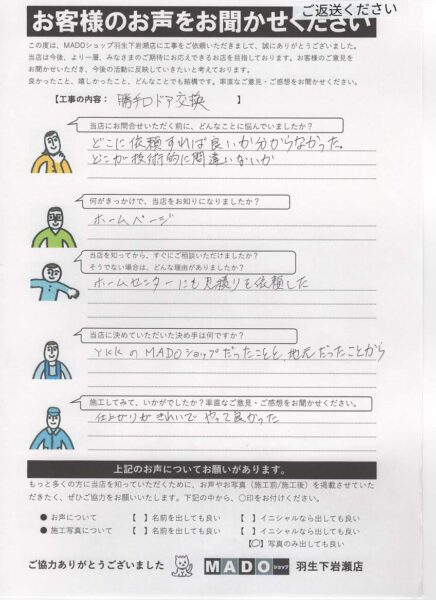 ご返送ください
お客様のお声をお聞かせください
この度は、MADOショップ羽生下岩瀬店に工事をご依頼いただきまして、誠にありがとうございました。
当店は今後、より一層、みなさまのご期待にお応えできるお店を目指しております。お客様のご意見を
お聞かせいただき、今後の活動に反映していきたいと考えております。
良かったこと、嬉しかったこと、どんなことでも結構です。率直なご意見・ご感想をお聞かせください。
【工事の内容： 勝手口ドア交換 】
当店にお問合せいただく前に、どんなことに悩んでいましたか？
どこに依頼すれば良いか分からなかった。
どこが技術的に間違いないか
何がきっかけで、当店をお知りになりましたか？
ホームページ
当店を知ってから、すぐにご相談いただけましたか？
そうでない場合は、どんな理由がありましたか？
ホームセンターにも見積りを依頼した
当店に決めていただいた決め手は何ですか？
YKKのMADOショップだったことと、地元だったことから
施工してみて、いかがでしたか？率直なご意見・ご感想をお聞かせください。
仕上がりがきれいでやって良かった
上記のお声についてお願いがあります。
もっと多くの方に当店を知っていただくために、お声やお写真（施工前/施工後）を掲載させていた
だきたく、ぜひご協力をお願いいたします。下記の中から、○印をお付けください。
● お声について 【 】名前を出しても良い 【 】イニシャルなら出しても良い
● 施工写真について 【 】名前を出しても良い 【 】イニシャルなら出しても良い
【○】写真のみ出しても良い
ご協力ありがとうございました MADOショップ 羽生下岩瀬店